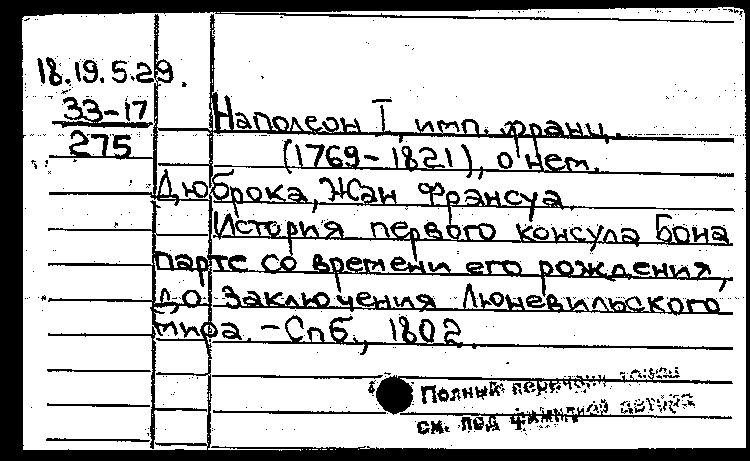 18.19.5.29.
33-17
275
Наполеон I, имп. франц.
(1769-1821), о нем.
Дюброка, Жан Франсуа.
История первого консула Бона
парте со времени его рождения,
до заключения Люневильского
мира. - Спб., 1802.
Полный перечень томов
см. под фамилией автора